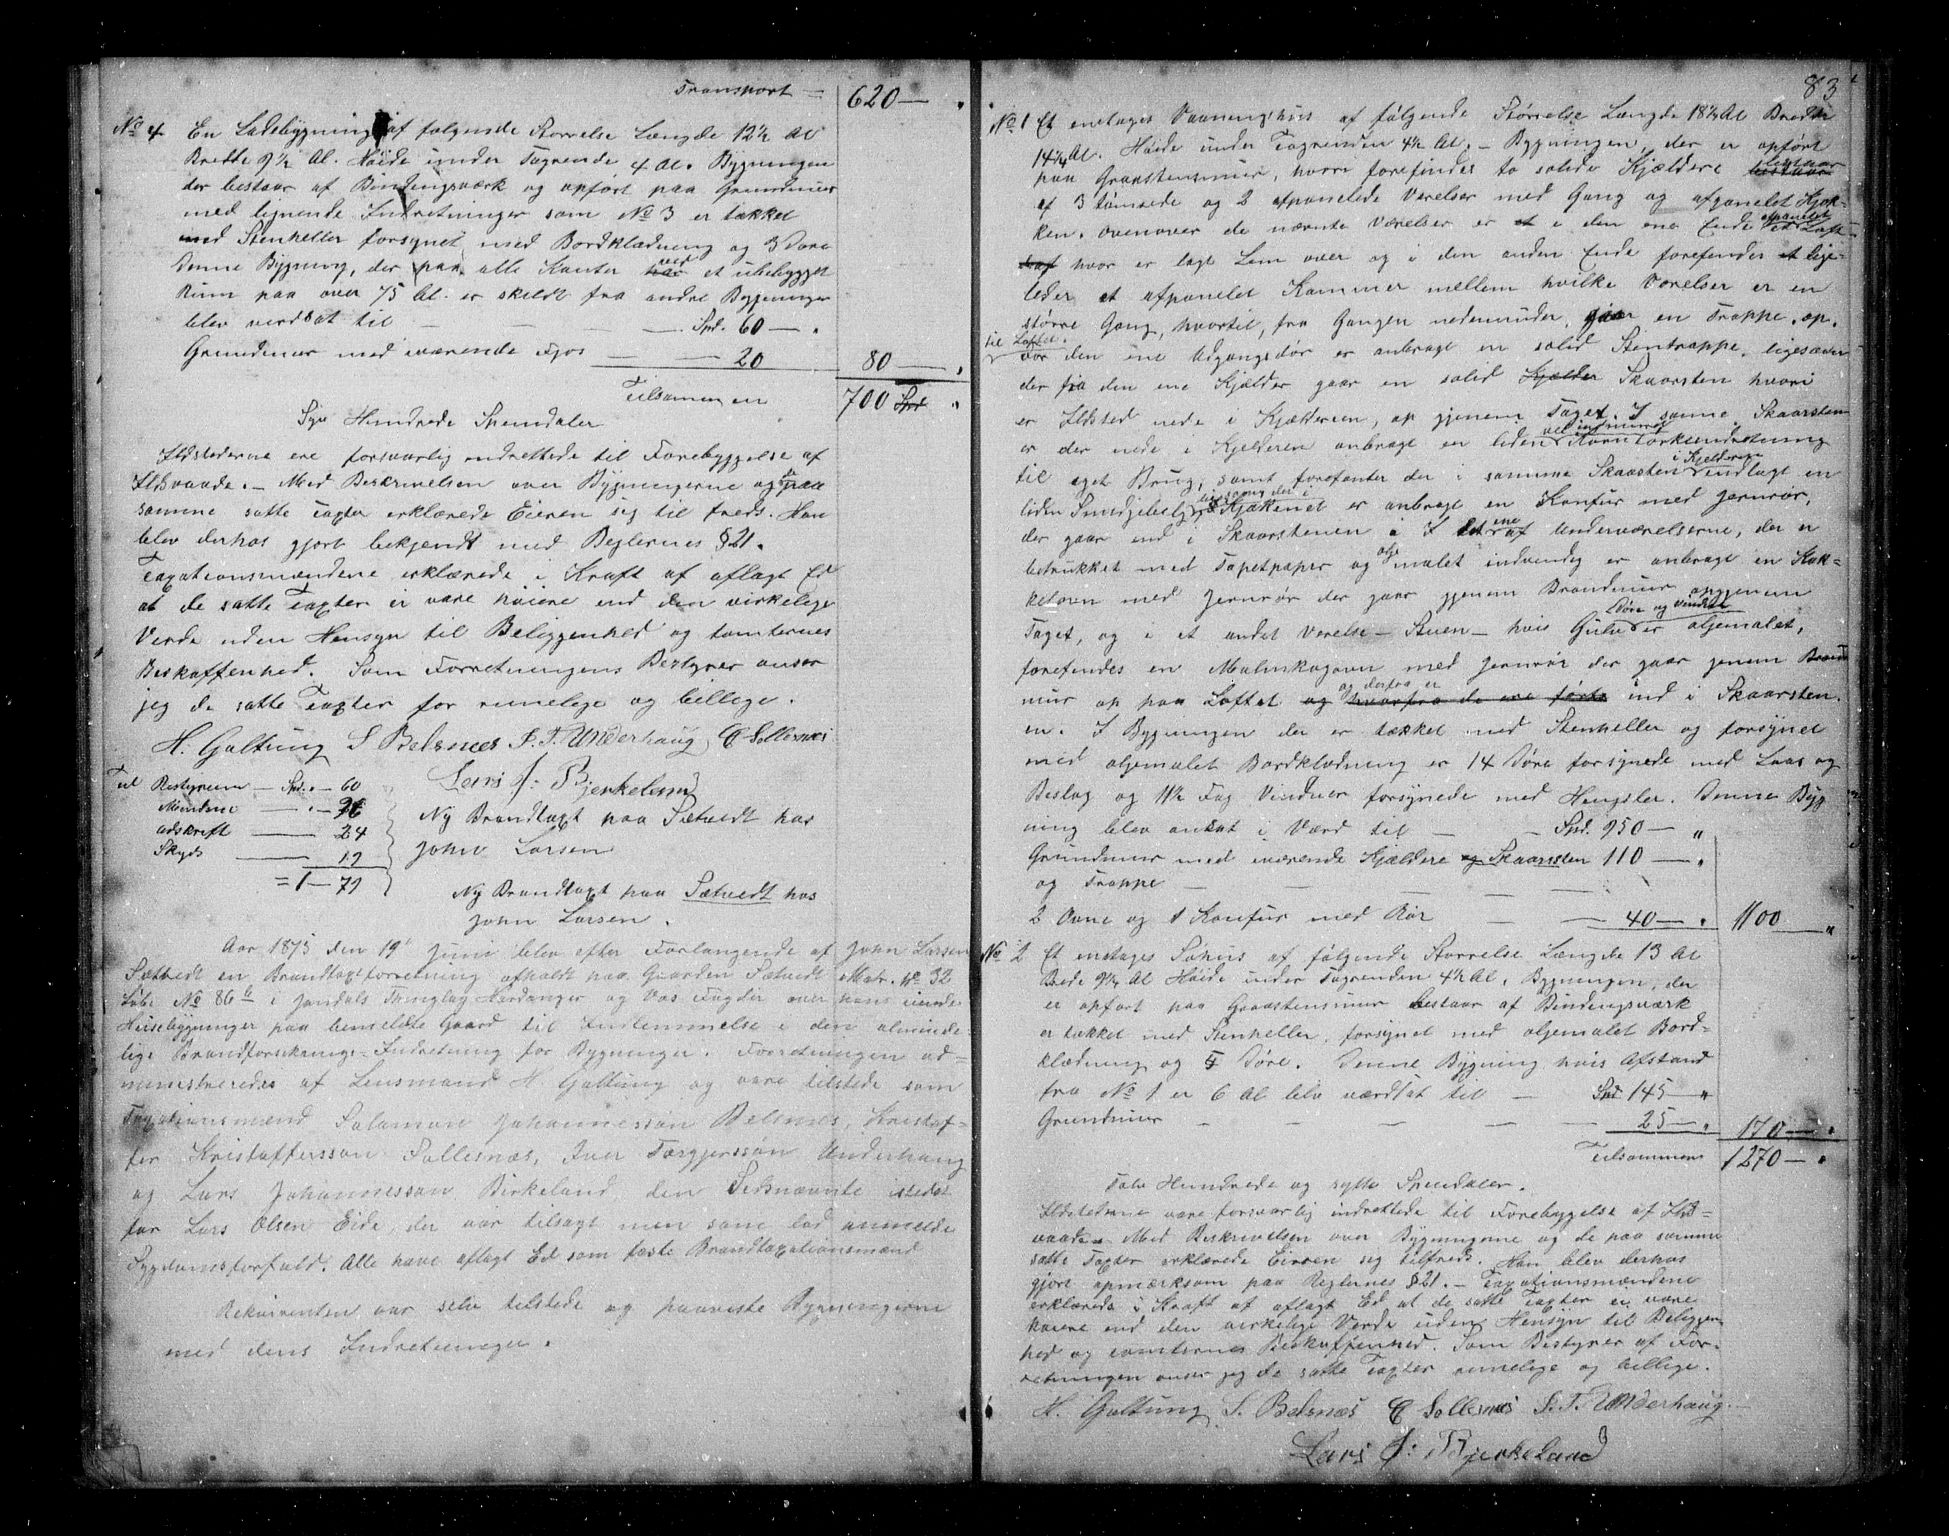 Transport = 620 —
No 4 En Ladebygning af følgende Størrelse Længde 12½ Al
Bredde 9½ Al. Høide under Tagrende 4 Al. Bygningen
der bestaar af Bindingsværk og opført paa Grundmur
med lignende Indretninger som No 3 er tækket
med Stenheller forsynet med Bordklædning og 3 Døre
Denne Bygning, der paa alle Kanter har ved et ubebygget
Rum paa over 75 Al. er skildt fra andre Bygninger
blev verdsat til — — — Spd. 60 — "
Grundmur med værende Fjøs — — 20 80 — "
Tilsammen 700 Spd "
Syv Hundrede Speciedaler
Ildstederne ere forsvarlig indrettede til Forebyggelse af
Ildsvaade. — Med Beskrivelsen over Bygningerne og de paa
samme satte Taxter erklærede Eieren sig til freds. Han
blev derhos gjort bekjendt med Reglernes § 21.
Taxationsmændene erklærede i Kraft af aflagt Ed
at de satte Taxter ei vare høiere end den virkelige
Verde uden Hensyn til Beliggenhed og tomternes
Beskaffenhed. Som Forretningens Bestyrer anser
jeg de satte Taxter for rimelige og billige.
H. Galtung S Belsnes I. T. Underhaug C Sollesnæs
Lars J: Bjerkeland
Til Bestyreren — Spd. " — 60
Mændene — " — 96
Udskrift — 24
Skyds — 19
= 1 — 79
Ny Brandtaxt paa Sætvedt hos
John Larsen
Ny Brandtaxt paa Sætvedt hos
John Larsen.
Aar 1875 den 19 Juni blev efter Forlangende af John Larsen
Sætvedt en Brandtaxtforretning afholdt paa Gaarden Sætvedt Matr. No 32
Løbe No 86 b i Jondals Thinglag Hardanger og Vos Fogderi over hans eiende
Husebygninger paa bemeldte Gaard til Indlemmelse i den alminde-
lige Brandforsikrings-Indretning for Bygninger. Forretningen ad-
ministreredes af Lensmand H. Galtung og vare tilstede som
Taxationsmænd Salamon Johannesson Belsnes, Kristof-
fer Kristoffersson Sollesnæs, Iver Torgjerssøn Underhaug
og Lars Johannesson Birkeland den Sidsnævnte istedet
for Lars Olsen Eide, der var tilsagt men som lod anmelde
Sygdomsforfald. Alle have aflagt Ed som faste Brandtaxationsmænd
Rekvirenten var selv tilstede og paaviste Bygningerne
med dens Indretninger.
83
No 1 Et enetages Vaaningshus af følgende Størrelse Længde 18½ Al Bredde
14¼ Al. Høide under Tagrenden 4½ Al. — Bygningen, der er opført
paa Graastensmur, hvori forefindes to solide Kjældere bestaar bestaar
af 3 tømrede og 2 afpanelede Værelser med Gang og afpanelet Kjøk-
ken. ovenover de nævnte Værelser er et i den ene Ende et afpanelet Loft
hvor er lagt Lem over og i den anden Ende forefindes et lige-
ledes et afpanelet Kammer mellem hvilke Værelser er en
større Gang, hvortil, fra Gangen nedenunder, gaar en Trappe op.
til Loftet.
ved den ene Udgangsdør er anbragt en solid Stentrappe, ligesaa
der fra den ene Kjælder gaar en solid Kjælder Skaarsten hvori
er Ildsted nede i Kjælderen, op gjenem Taget. I samme Skaarsten
er der nede i Kjelderen anbragt en liden vel indmuret Korntørkeindretning
til eget Brug, samt forefinder der i samme Skaarsten i Kjelderen indlagt en
liden Smedje ligesom der i Kjøkenet er anbragt en Komfur med Jernrør,
der gaar ind i Skaarstenen. I det ene af Underværelserne, der er
betrukket med Tapetpaper og olje malet indvendig er anbragt en Kak-
kelovn med Jernrør der gaar gjenem Brandmur opgjenem
Taget, og i et andet Værelse — Stuen — hvis Gulv Døre og Vindue er oljemalet,
forefindes en Malmkogovn med Jernrør der gaar jenem Brand
mur op paa Loftet og hvorfra de ere førte og derfra er ind i Skaarsten
en. I Bygningen der er tækket med Stenheller og forsynet
med oljemalet Bordklædning er 14 Døre forsynede med Laas og
Beslag og 11½ Fag Vinduer forsynede med Hengsler. Denne Byg
ning blev ansat i Værd til — — Spd. 950 — "
Grundmur med værende Kjældere og Skaarsten 110 — "
og Trappe — — — —
2 Ovne og 1 Komfur med Rør — — 40 — " 1100 — "
No 2 Et enetages Søhus af følgende Størrelse Længde 13 Al
Brede 9¼ Al Høide under Tagrenden 4½ Al, Bygningen, der
er opført paa Graastensmur bestaar af Bindingsværk
er tækket med Stenheller, forsynet med oljemalet Bord-
klædning og 5 Døre. Denne Bygning hvis Afstand
fra No 1 er 6 Al blev værdsat til — Spd 145 — "
Grundmur — — — — 25 — " 170 — "
Tilsammen 1270 — "
Tolv Hundrede og sytti Speciedaler.
Ildstederne vare forsvarlig indrettede til Forebyggelse af Ild-
vaade. Med Beskrivelsen over Bygningerne og de paa samme
satte Taxter erklærede Eieren sig tilfreds. Han blev derhos
gjort opmærksom paa Reglernes § 21. — Taxationsmændene
erklærede i Kraft af aflagt Ed at de satte Taxter ei vare
høiere end den virkelige Verde uden Hensyn til Beliggen
hed og tomternes Beskaffenhed. Som Bestyrer af For-
retningen anser jeg de satte Taxter rimelige og billige.
H. Galtung S. Belsnæs C Sollesnæs I. T. Underhaug
Lars J: Bjerkeland